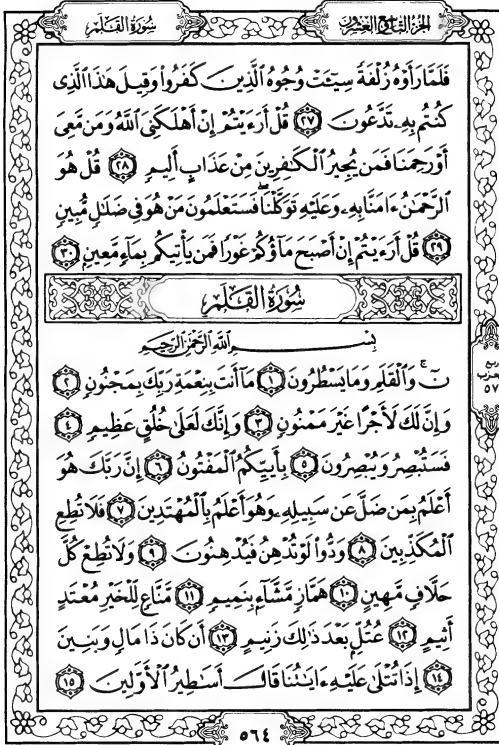 سُورَةُ القَلَمِ
الجُزءُ التَّاسِعُ وَالعِشرُونَ
فَلَمَّا رَأَوْهُ زُلْفَةً سِيٓـَٔتْ وُجُوهُ ٱلَّذِينَ كَفَرُوا۟ وَقِيلَ هَٰذَا ٱلَّذِى
كُنتُم بِهِۦ تَدَّعُونَ ٢٧ قُلْ أَرَءَيْتُمْ إِنْ أَهْلَكَنِىَ ٱللَّهُ وَمَن مَّعِىَ
أَوْ رَحِمَنَا فَمَن يُجِيرُ ٱلْكَٰفِرِينَ مِنْ عَذَابٍ أَلِيمٍ ٢٨ قُلْ هُوَ
ٱلرَّحْمَٰنُ ءَامَنَّا بِهِۦ وَعَلَيْهِ تَوَكَّلْنَا ۖ فَسَتَعْلَمُونَ مَنْ هُوَ فِى ضَلَٰلٍ مُّبِينٍ
٢٩ قُلْ أَرَءَيْتُمْ إِنْ أَصْبَحَ مَآؤُكُمْ غَوْرًا فَمَن يَأْتِيكُم بِمَآءٍ مَّعِينٍۭ ٣٠
سُورَةُ القَلَمِ
بِسْمِ ٱللَّهِ ٱلرَّحْمَٰنِ ٱلرَّحِيمِ
نٓ ۚ وَٱلْقَلَمِ وَمَا يَسْطُرُونَ ١ مَآ أَنتَ بِنِعْمَةِ رَبِّكَ بِمَجْنُونٍ ٢
وَإِنَّ لَكَ لَأَجْرًا غَيْرَ مَمْنُونٍ ٣ وَإِنَّكَ لَعَلَىٰ خُلُقٍ عَظِيمٍ ٤
فَسَتُبْصِرُ وَيُبْصِرُونَ ٥ بِأَييِّكُمُ ٱلْمَفْتُونُ ٦ إِنَّ رَبَّكَ هُوَ
أَعْلَمُ بِمَن ضَلَّ عَن سَبِيلِهِۦ وَهُوَ أَعْلَمُ بِٱلْمُهْتَدِينَ ٧ فَلَا تُطِعِ
ٱلْمُكَذِّبِينَ ٨ وَدُّوا۟ لَوْ تُدْهِنُ فَيُدْهِنُونَ ٩ وَلَا تُطِعْ كُلَّ
حَلَّافٍ مَّهِينٍ ١٠ هَمَّازٍ مَّشَّآءٍۭ بِنَمِيمٍ ١١ مَّنَّاعٍ لِّلْخَيْرِ مُعْتَدٍ
أَثِيمٍ ١٢ عُتُلٍّۭ بَعْدَ ذَٰلِكَ زَنِيمٍ ١٣ أَن كَانَ ذَا مَالٍ وَبَنِينَ
١٤ إِذَا تُتْلَىٰ عَلَيْهِ ءَايَٰتُنَا قَالَ أَسَٰطِيرُ ٱلْأَوَّلِينَ ١٥
ربع
الحزب
٥٧
٥٦٤